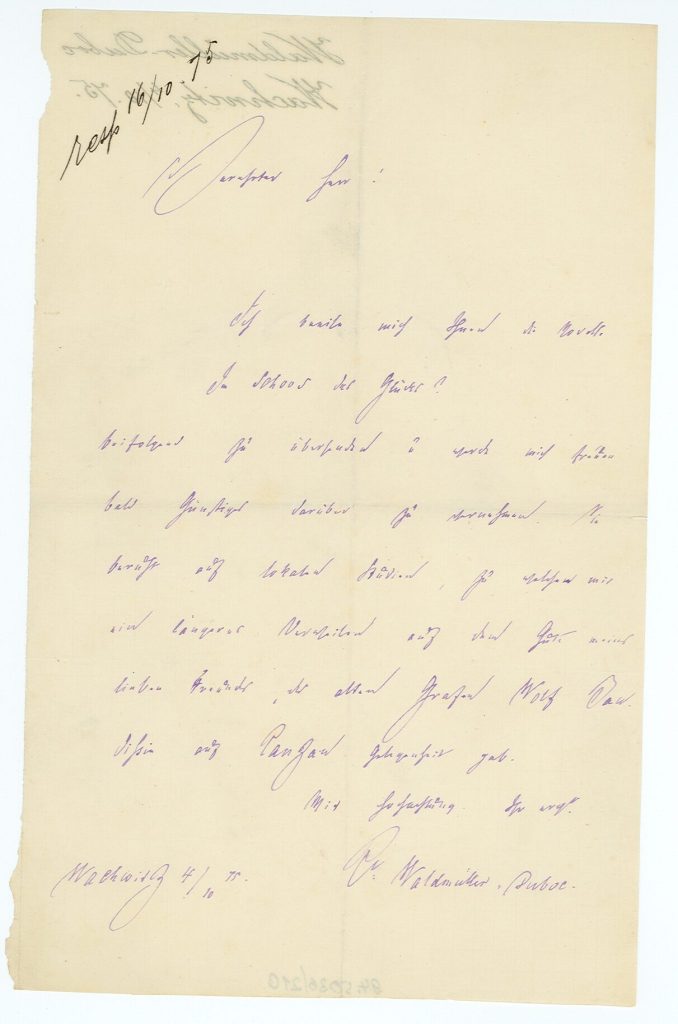 resp 16/10. 75
Verehrter Herr!
Ich beeile mich Ihnen die Novelle
Im Schoos des Glückes?
beifolgend zu übersenden u werde mich freuen
bald Günstiges darüber zu vernehmen. Sie
beruht auf lokalen Studien, zu welchen mir
ein längeres Verweilen auf dem Gute meines
lieben Freundes, des alten Grafen Wolf Bau-
dissin auf Ranzau Gelegenheit gab.
Mit Hochachtung. Ihr erg.
Dr. Waldmüller-Duboc.
Wachwitz 4/10 75.